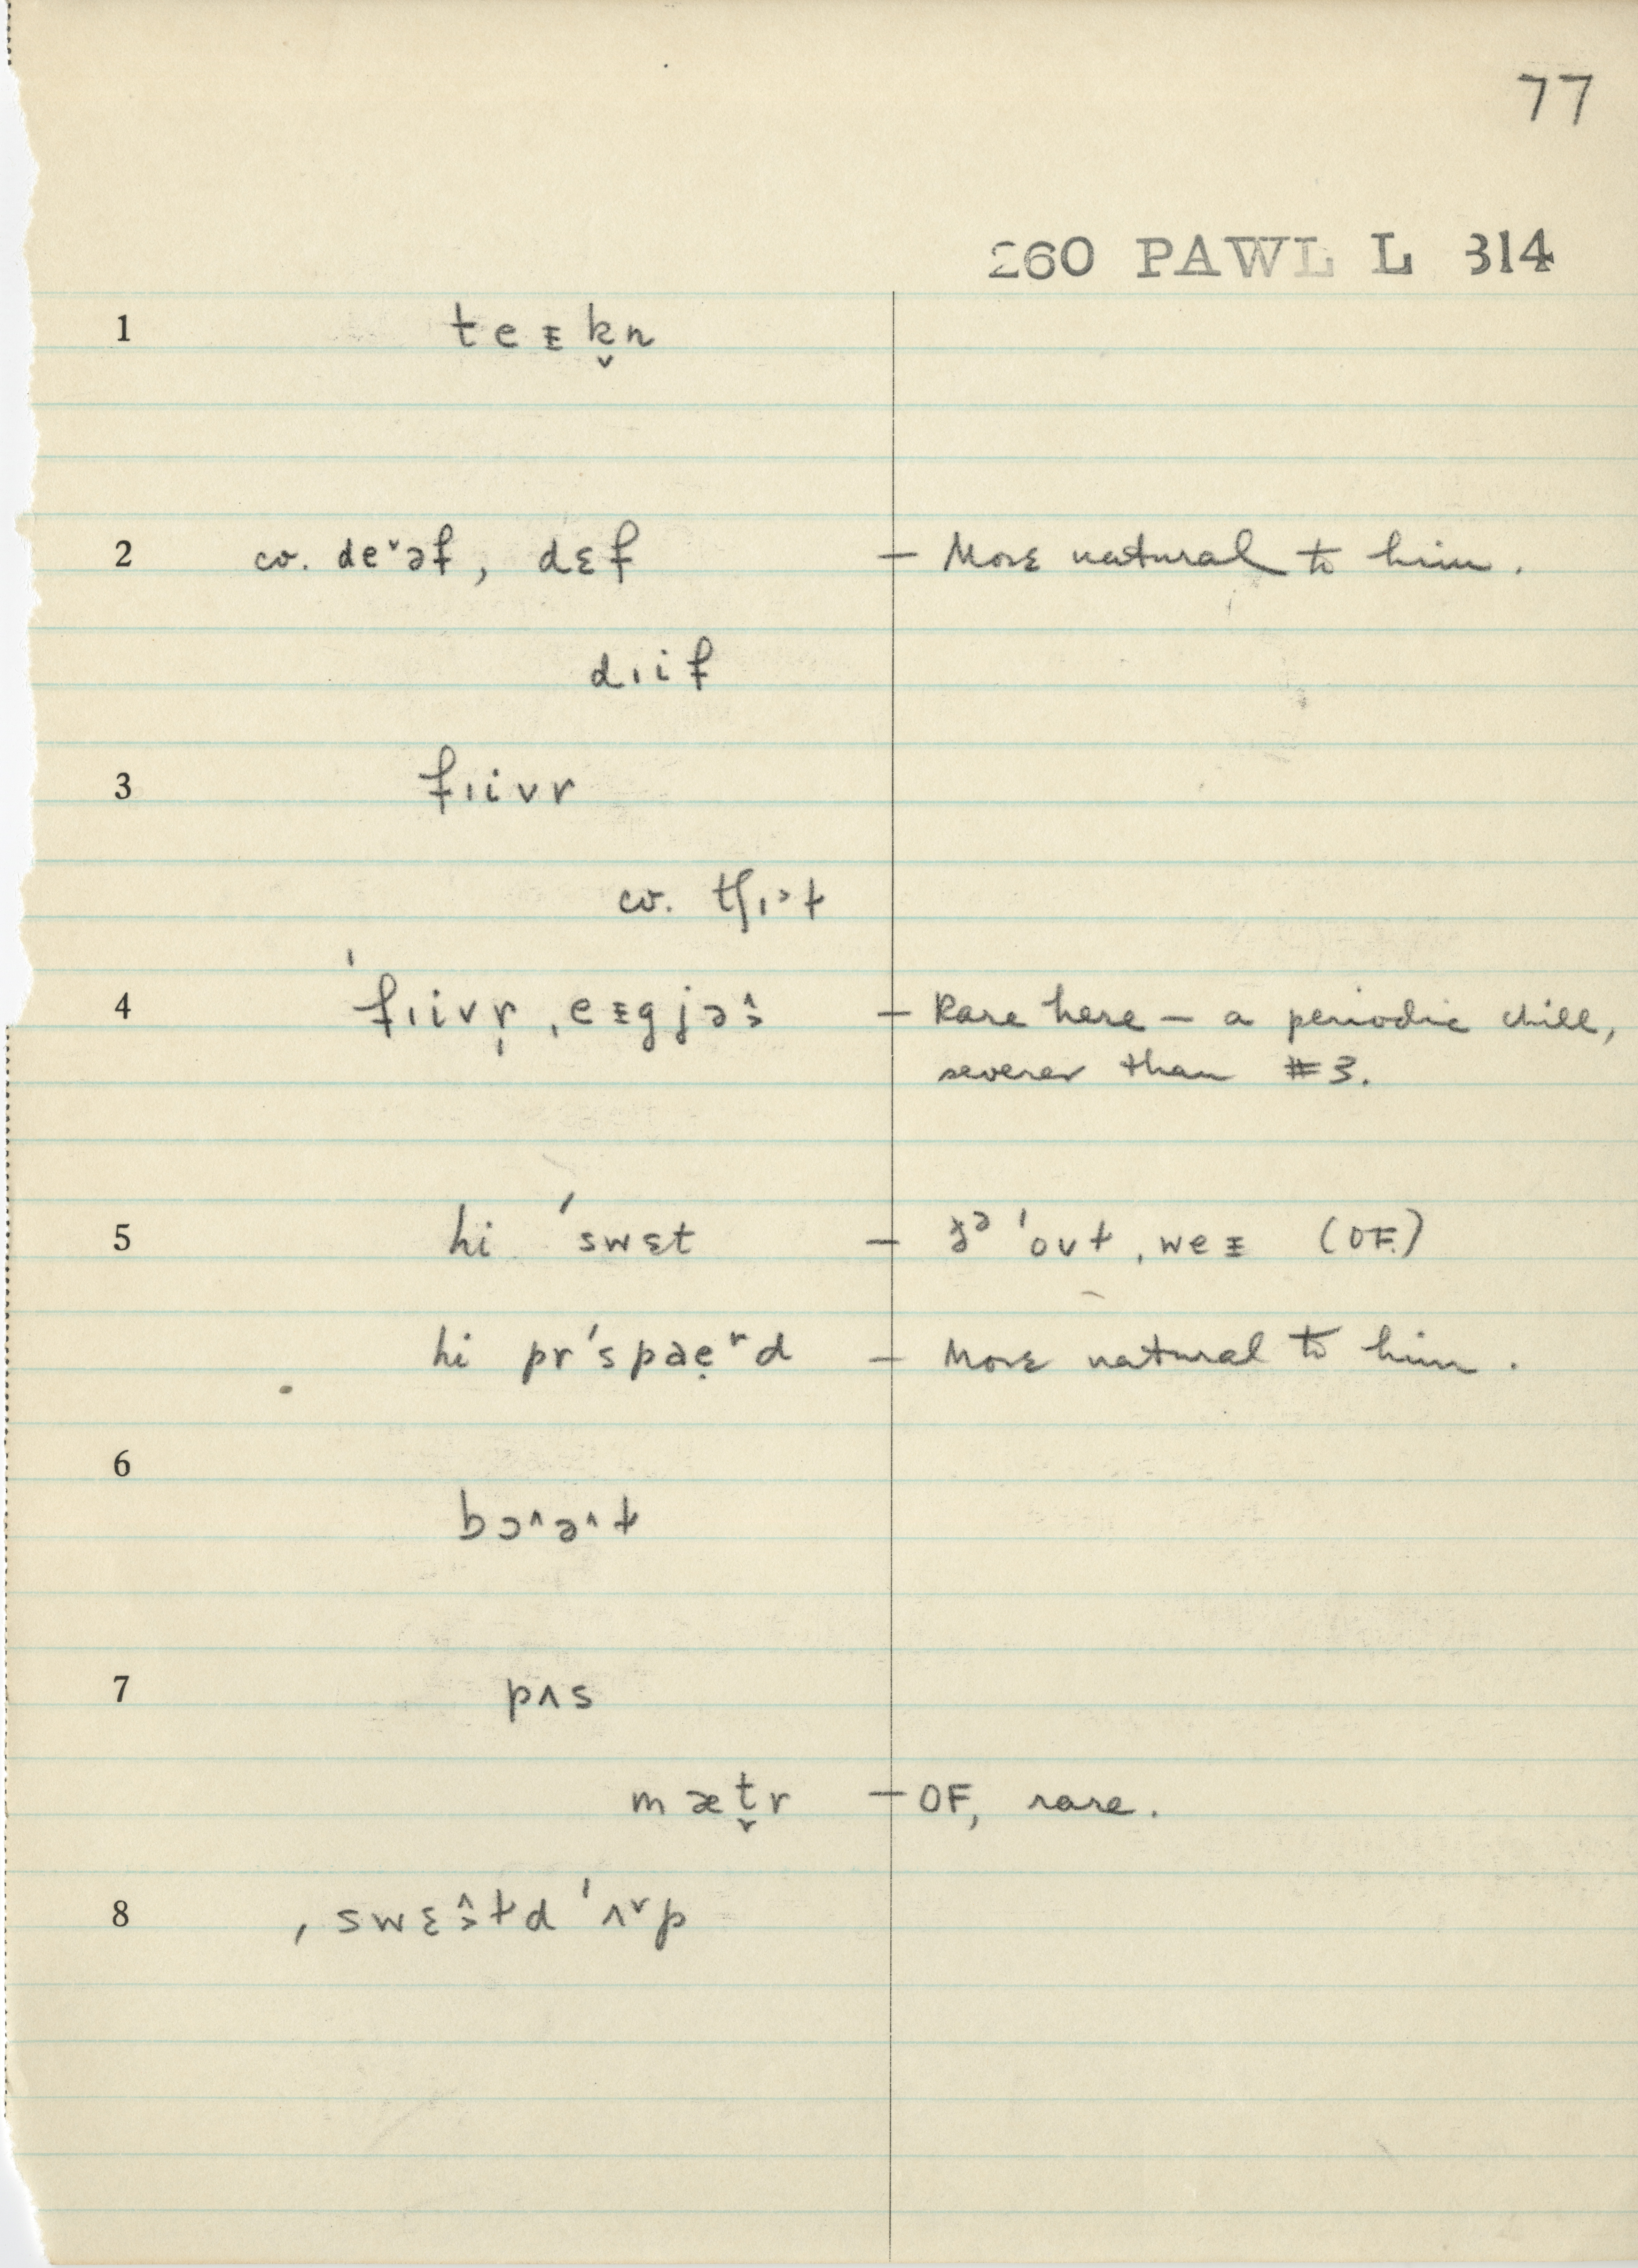 77
260 PAWL L 314
1 teᵻk̬n
2 cv. deˇəf, dɛf — More natural to him.
dɪif
3 fɪivr
cv. tʃɪ˃ɫ
4 ˈfɪivr̩ ˌeᵻgjə̭˃ — Rare here — a periodic chill,
severer than #3.
5 hi ˈswɛt — ˈoʊɫ ˌweᵻ (OF.)
hi prˈspaẹʳd — More natural to him.
6
bɔ^ə^ɫ
7 pʌs
mæt̬r — OF, rare.
8 ˌswɛ^˃ɫd ˈʌˇp